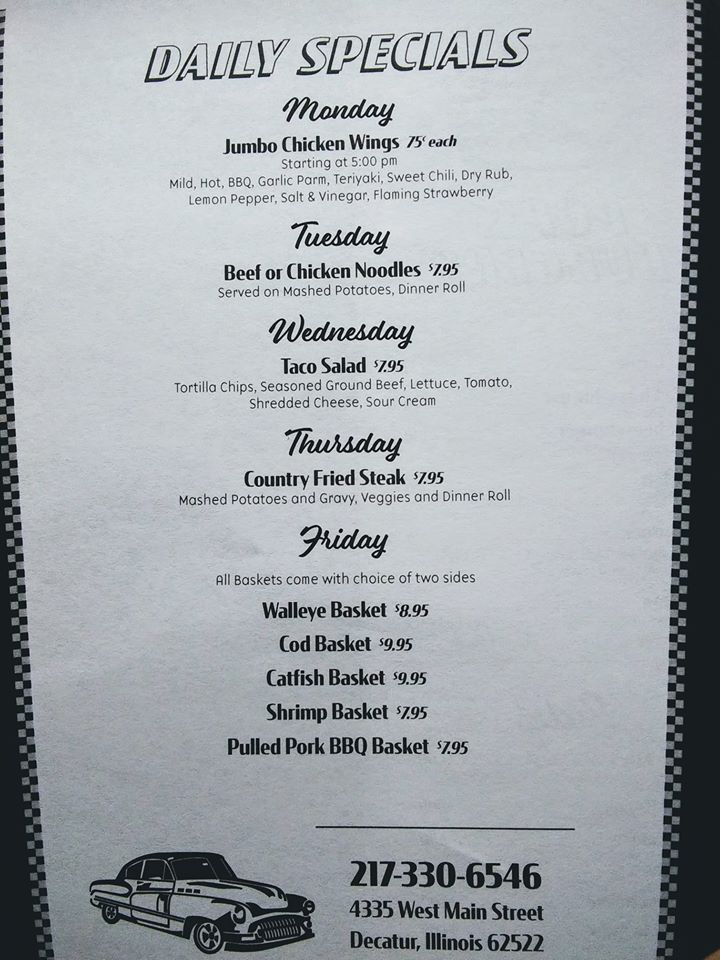 DAILY SPECIALS
Monday
Jumbo Chicken Wings 75¢ each
Starting at 5:00 pm
Mild, Hot, BBQ, Garlic Parm, Teriyaki, Sweet Chili, Dry Rub,
Lemon Pepper, Salt & Vinegar, Flaming Strawberry
Tuesday
Beef or Chicken Noodles $7.95
Served on Mashed Potatoes, Dinner Roll
Wednesday
Taco Salad $7.95
Tortilla Chips, Seasoned Ground Beef, Lettuce, Tomato,
Shredded Cheese, Sour Cream
Thursday
Country Fried Steak $7.95
Mashed Potatoes and Gravy, Veggies and Dinner Roll
Friday
All Baskets come with choice of two sides
Walleye Basket $8.95
Cod Basket $9.95
Catfish Basket $9.95
Shrimp Basket $7.95
Pulled Pork BBQ Basket $7.95
217-330-6546
4335 West Main Street
Decatur, Illinois 62522